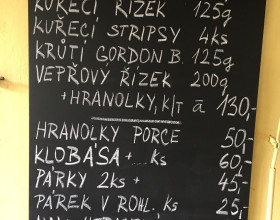 KUŘECÍ ŘÍZEK 125g
KUŘECÍ STRIPSY 4ks
KRŮTÍ GORDON B. 125g
VEPŘOVÝ ŘÍZEK 200g
+ HRANOLKY, K/T á 130,-
HRANOLKY PORCE 50,-
KLOBÁSA + ... ks 60,-
PÁRKY 2ks + 45,-
PÁREK V ROHL. ks 25,-